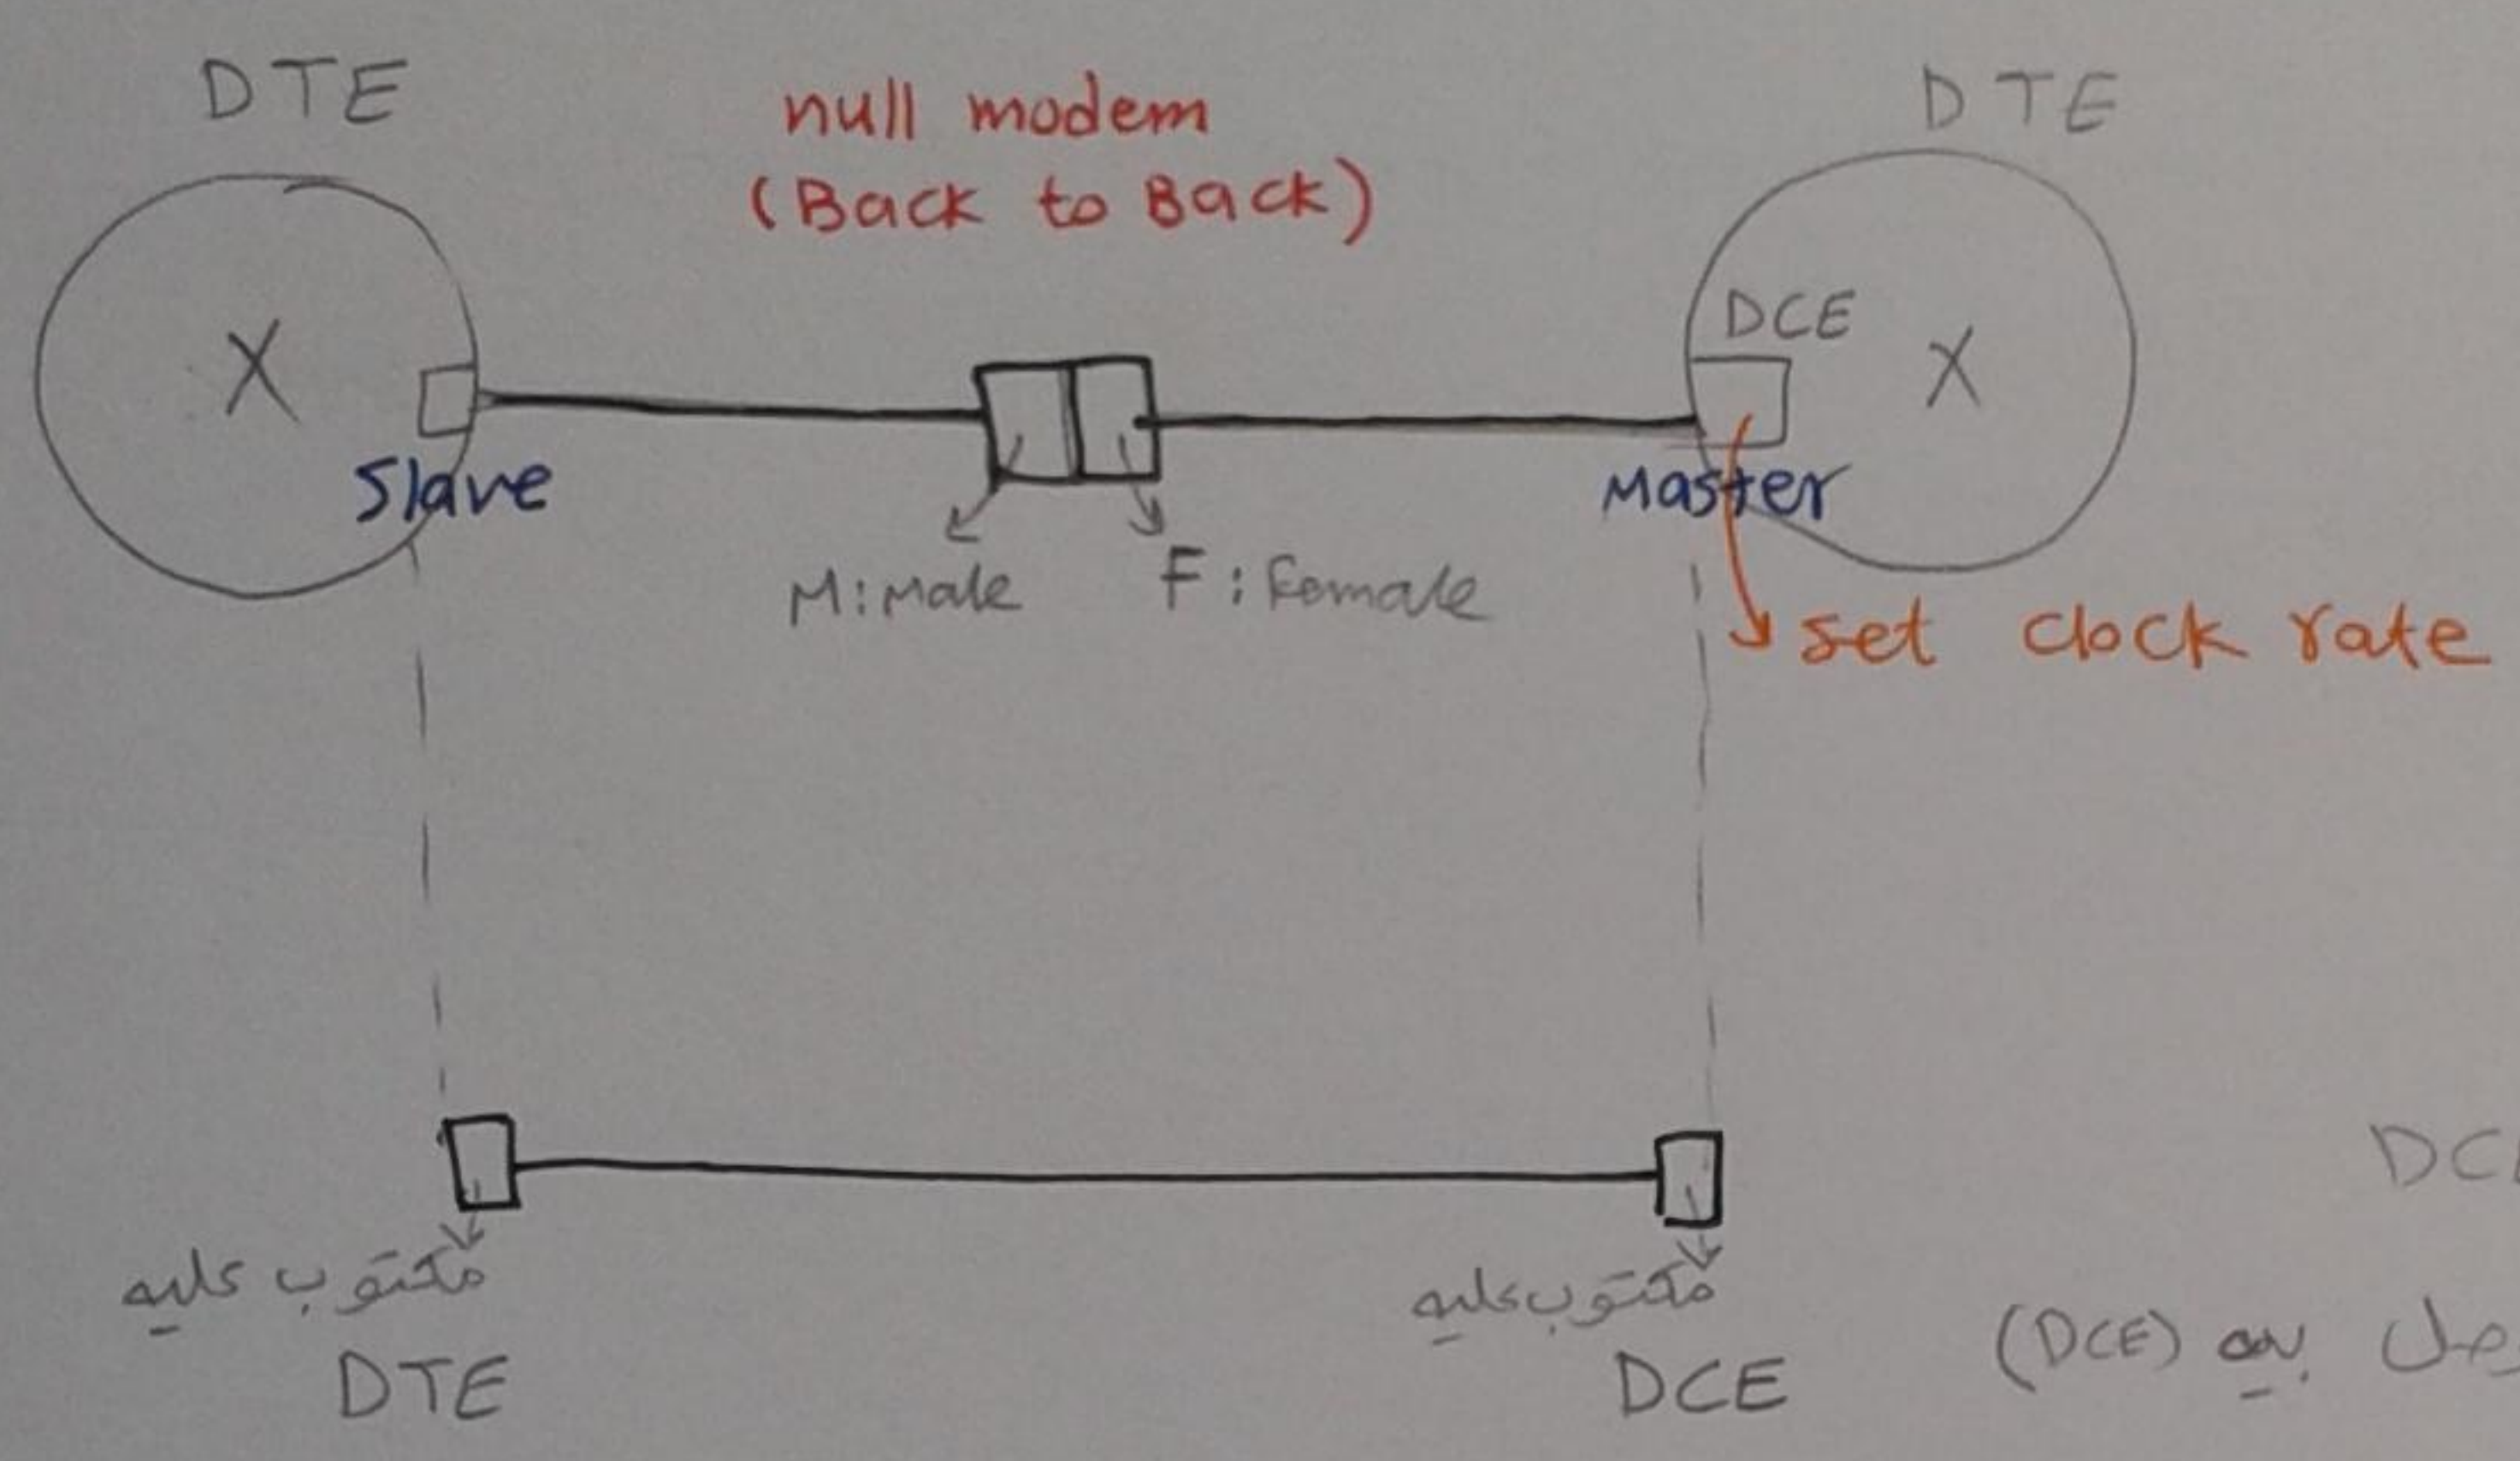 DTE
null modem
(Back to Back)
DTE
X
DCE
X
Slave
Master
M: Male
F: Female
set clock rate
مكتوب عليه
DTE
مكتوب عليه
DCE
بـ (DCE)